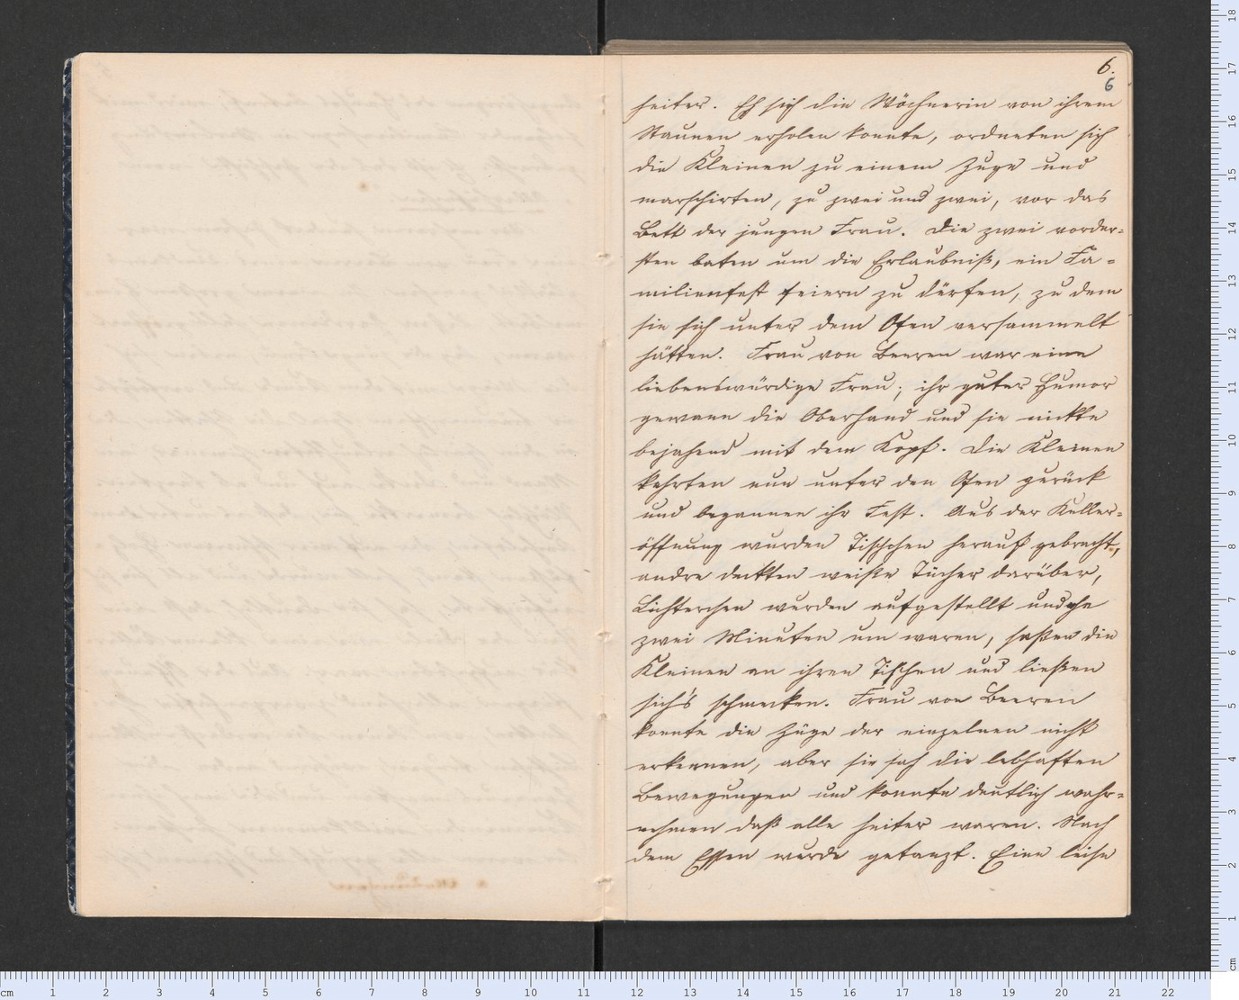 6.
6
heiter. Eh sich die Wöchnerin von ihrem
Staunen erholen konnte, ordneten sich
die Kleinen zu einem Zuge und
marschirten, zu zwei und zwei, vor das
Bett der jungen Frau. Die zwei vorder-
sten baten um die Erlaubniß, ein Fa-
milienfest feiern zu dürfen, zu dem
sie sich unter dem Ofen versammelt
hätten. Frau von Beeren war eine
liebenswürdige Frau; ihr guter Humor
gewann die Oberhand und sie nickte
bejahend mit dem Kopf. Die Kleinen
kehrten nun unter den Ofen zurück
und begannen ihr Fest. Aus der Keller-
öffnung wurden Tischchen herauf gebracht,
andre deckten weiße Tücher darüber,
Lichterchen wurden aufgestellt und ehe
zwei Minuten um waren, saßen die
Kleinen an ihren Tischen und ließen
sich's schmecken. Frau von Beeren
konnte die Züge der einzelnen nicht
erkennen, aber sie sah die lebhaften
Bewegungen und konnte deutlich wahr-
nehmen daß alle heiter waren. Nach
dem Essen wurde getanzt. Eine leise